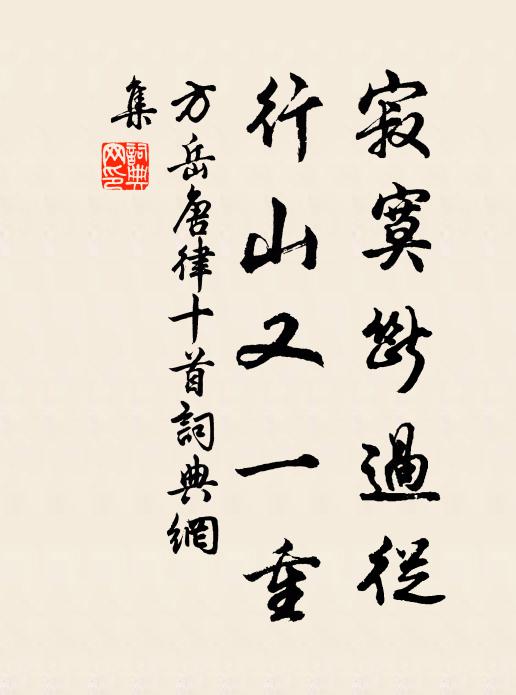 寂寞斷過從
行山又一重
方岳唐律十首詞典網
集
詞典網印